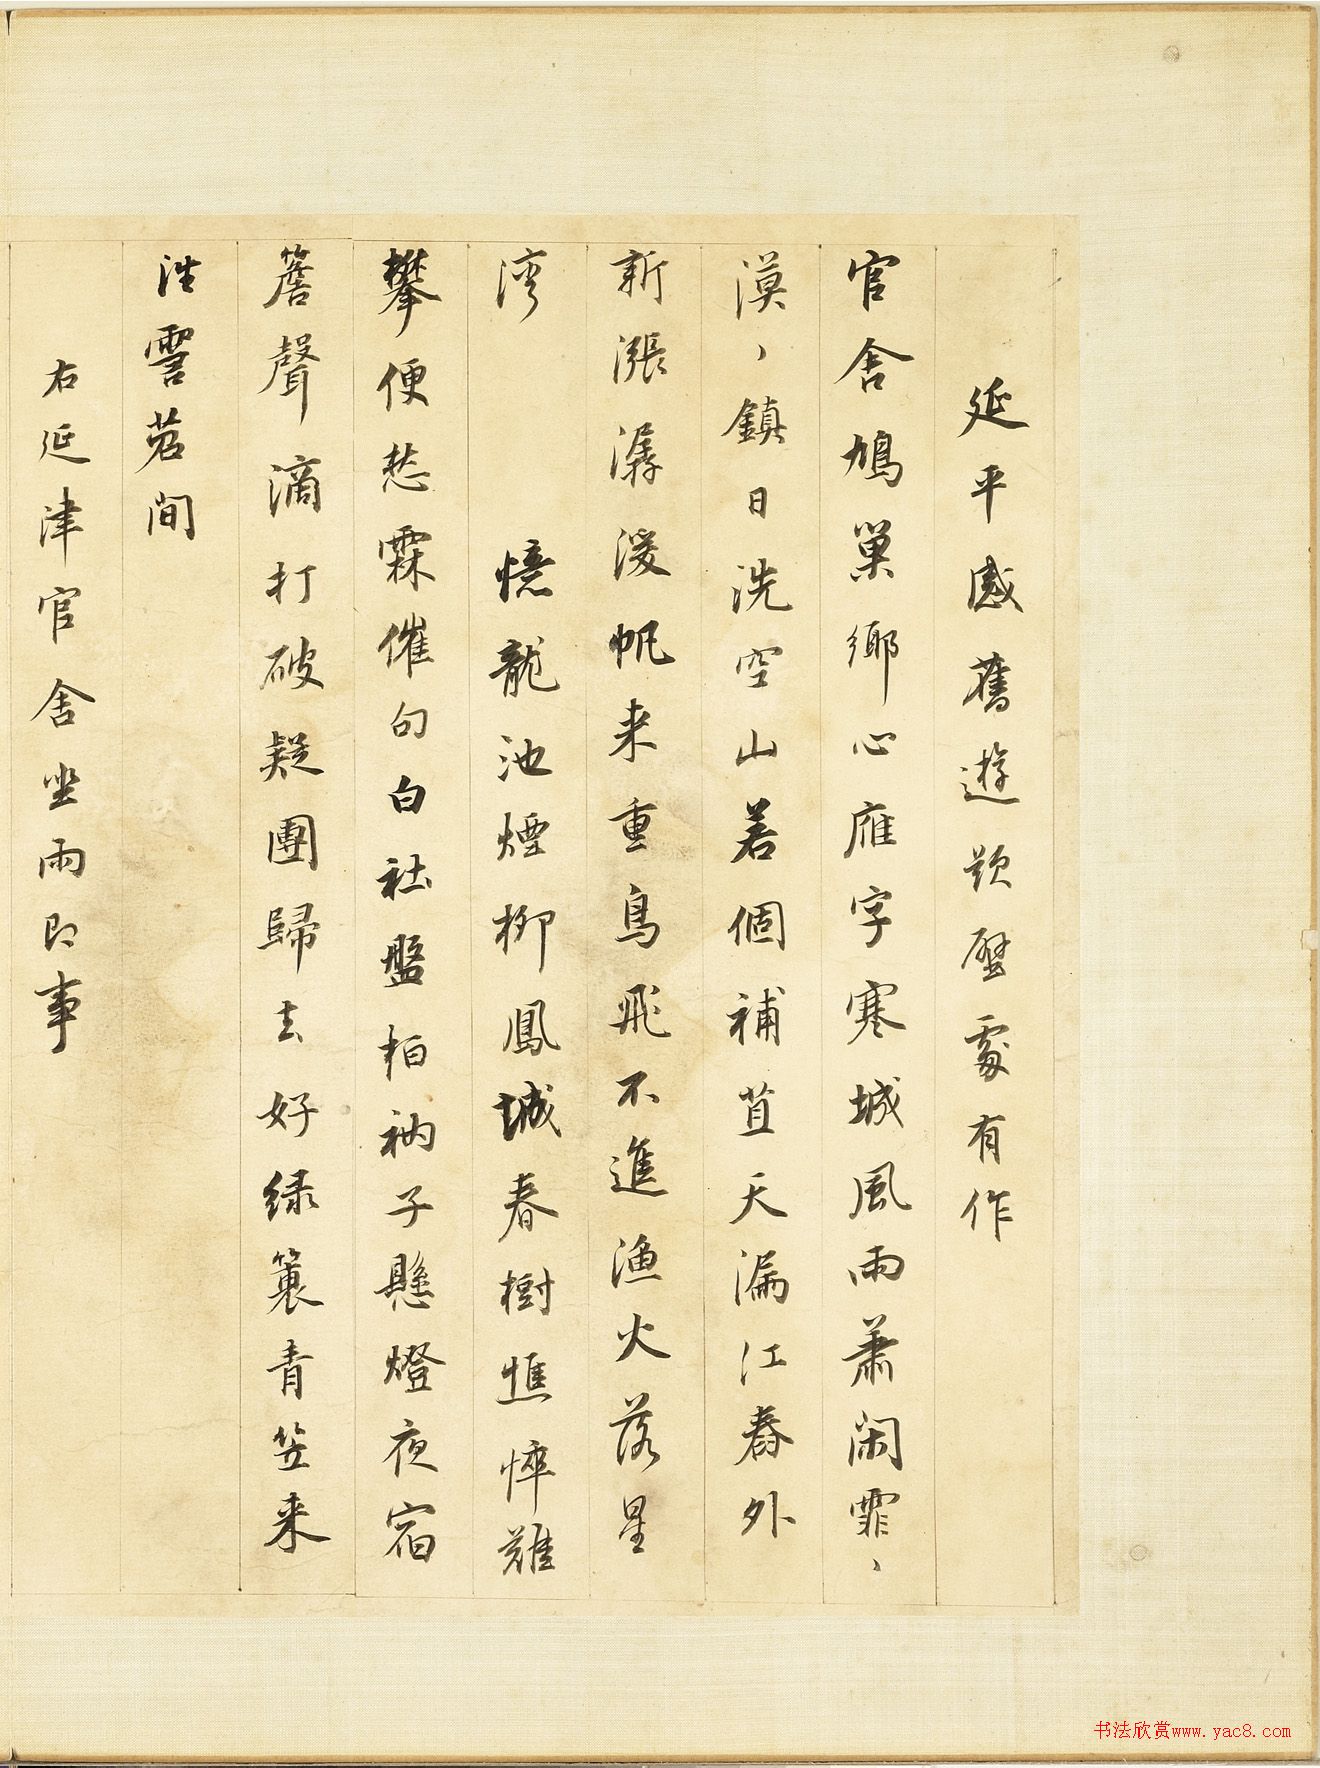 延平感舊遊題壁處有作
官舍鳩巢鄉心雁字寒城風雨蕭閑霏、
漠、鎮日洗空山若個補苴天漏江春外
新漲潺湲帆来重鳥飛不進漁火落星
湾
憶龍池煙柳鳳城春樹憔悴難
攀便愁霖催句白社盤柏衲子懸燈夜宿
簷聲滴打破疑團歸去好緑簑青笠来
往霅苕間
右延津官舍坐雨即事
书法欣赏www.yac8.com